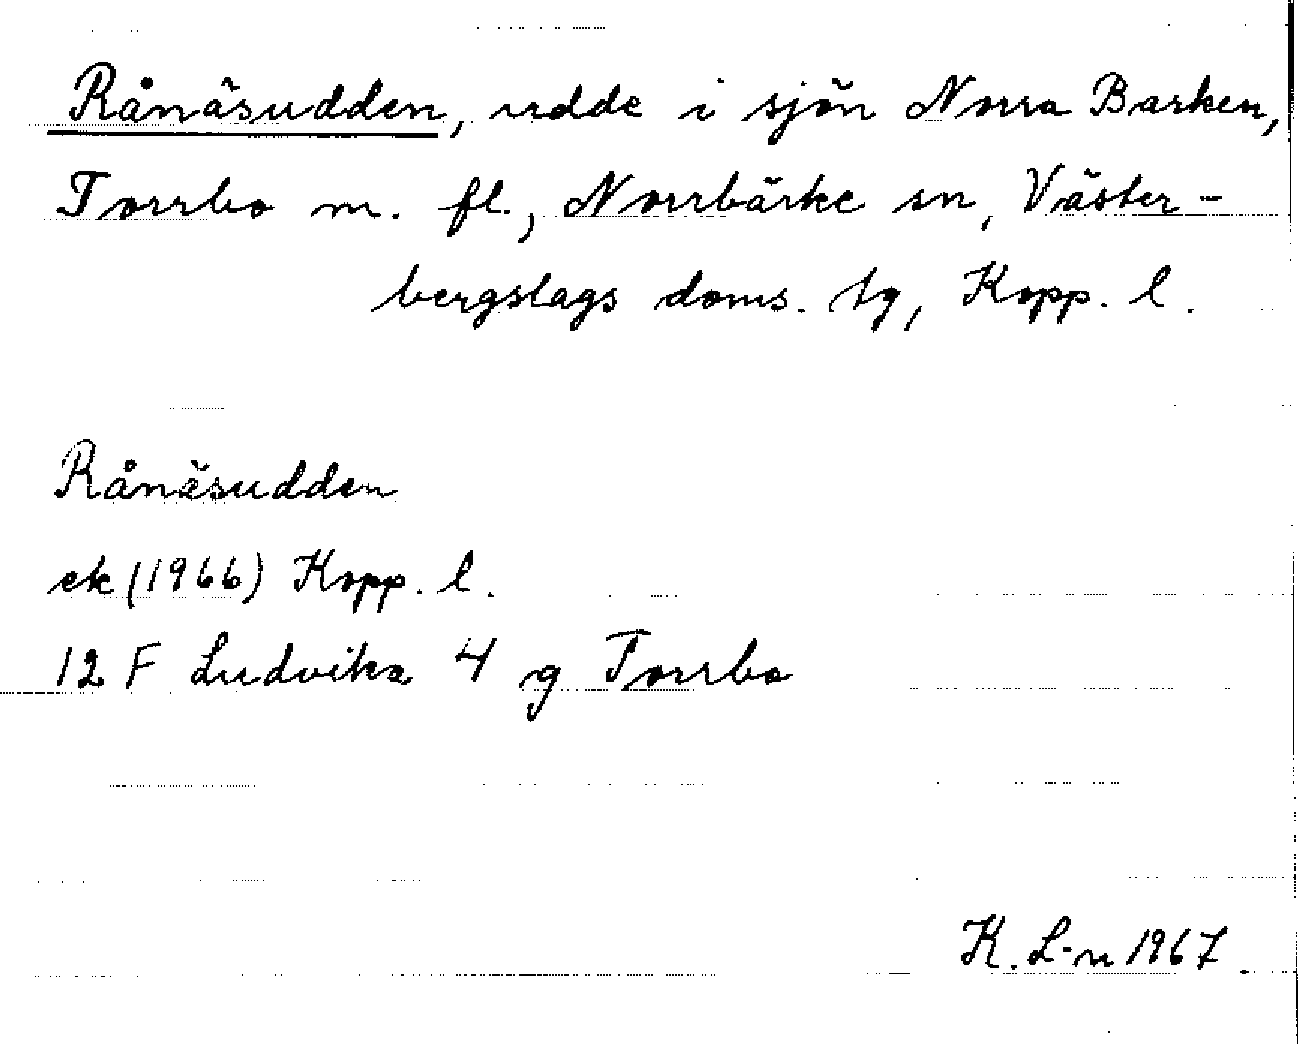 Rånäsudden, udde i sjön Norra Barken,
Torrbo m. fl., Norrbärke sn, Väster-
bergslags doms. tg, Kopp. l.
Rånäsudden
ek (1966) Kopp. l.
12 F Ludvika 4 g Torrbo
K. L-n 1967.